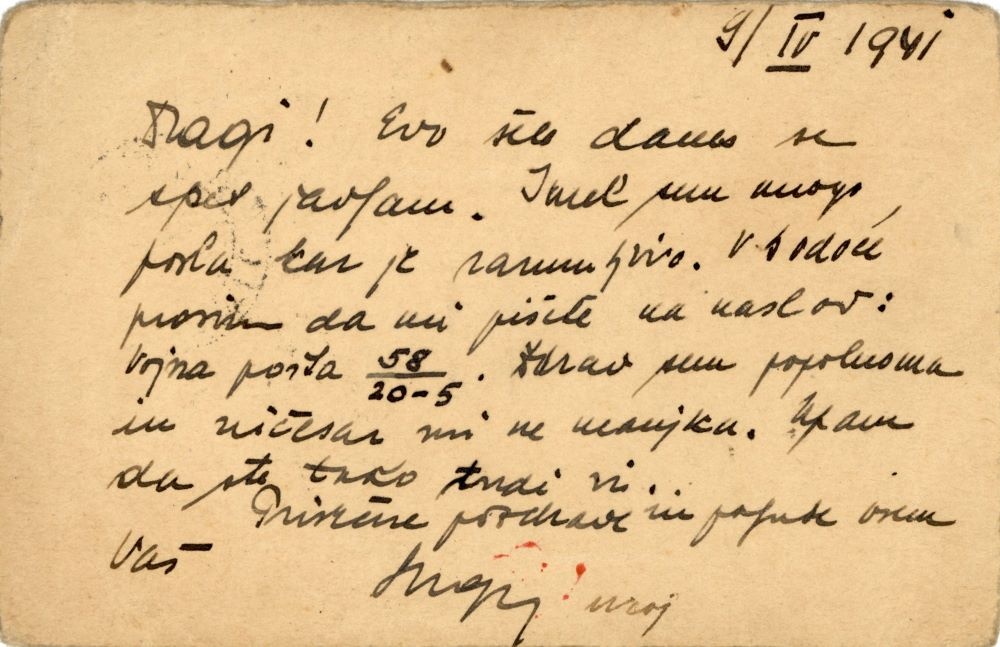 9/IV 1941
Dragi! Evo šele danes se
spet javljam. Imel sem mnogo
posla kar je razumljivo. V bodoče
prosim da mi pišete na naslov:
Vojna pošta 58/20-5. Zdrav sem popolnoma
in ničesar mi ne manjka. Upam
da ste tako tudi vi.
Prisrčne pozdrave in poljube vsem
Vaš